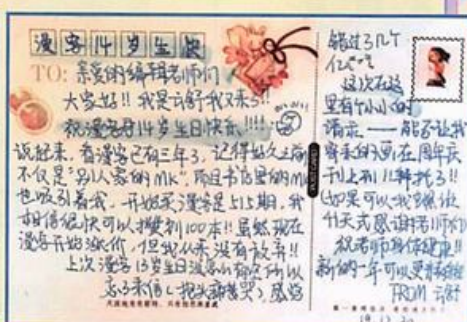 漫客14岁生快
TO: 亲爱的编辑老师们
大家好!! 我是云舒我又来了!!
祝漫客14岁生日快乐!!!!
说起来，看漫客已有三年了，记得好久之前
不仅是“别人家的MK”，而且书店里的MK
也吸引着我，开始买漫客是515期，我
相信很快可以攒到100本!! 虽然现在
漫客开始涨价，但我从来没有放弃!!
上次漫客13岁生日
忘了来信(抱头痛哭)感觉
错过了几个
亿
这次在这
里有个小小的
请求——能否让我
寄来的画在周年庆
刊上刊!! 拜托了!!
(如果可以我
什天式感谢老师们
祝老师身体健康!!
新的一年可以更
FROM 云舒
POSTCARD